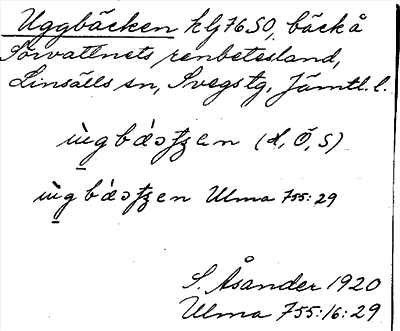 Uggbäcken klj76SO, bäck å
Sörvattnets renbetesland,
Linsälls sn, Svegs tg, Jämtl. l.
(d, Ö, S)
Ulma 755:29
S. Åsander 1920
Ulma 755:16:29